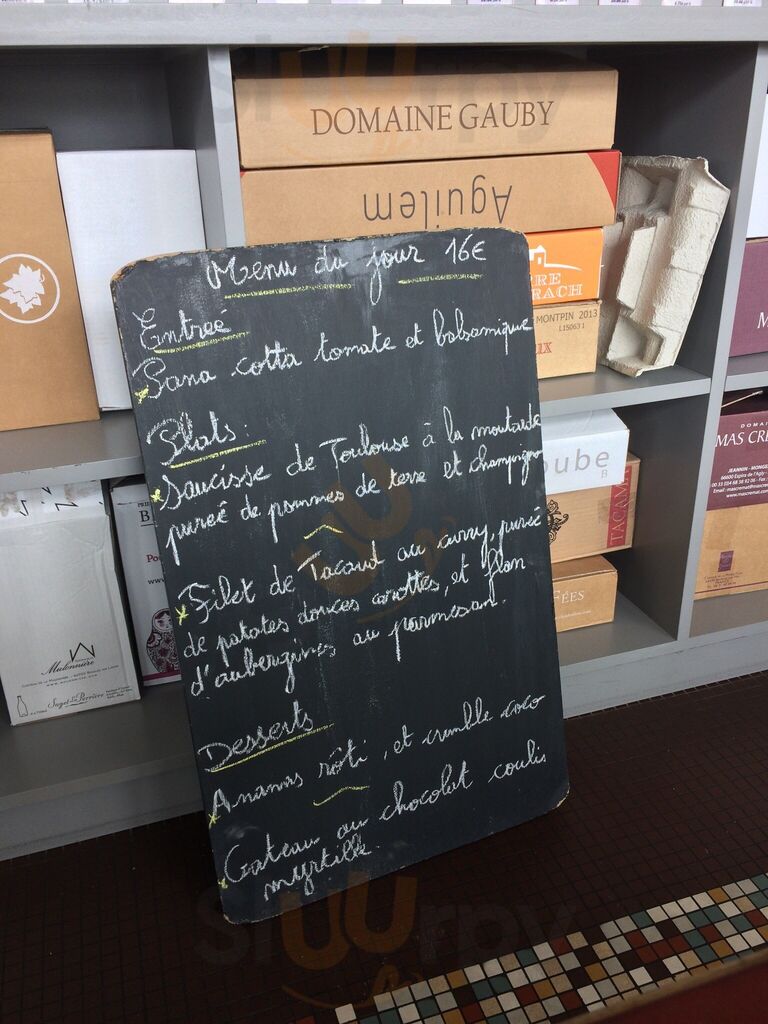 DOMAINE GAUBY
Aguilem
RRE
RACH
MONTPIN 2013
L15063 1
ux
Menu du jour 16€
Entreé
Pana cotta tomate et balsamique
Plats:
Saucisse de Toulouse à la moutarde
pureé de pommes de terre et champignon
Filet de Tacaud au curry, pureé
de patates douces carottes, et flan
d'aubergines au parmesan.
Desserts
Ananas rôti, et crumble coco
Gateau au chocolat coulis
myrtille.
oube
B
TAGAMI
FÉES
DOMAI
MAS CRE
JEANNIN - MONGE
66600 Espira de l'Agly
Mulonnière
Suzet de Perrière